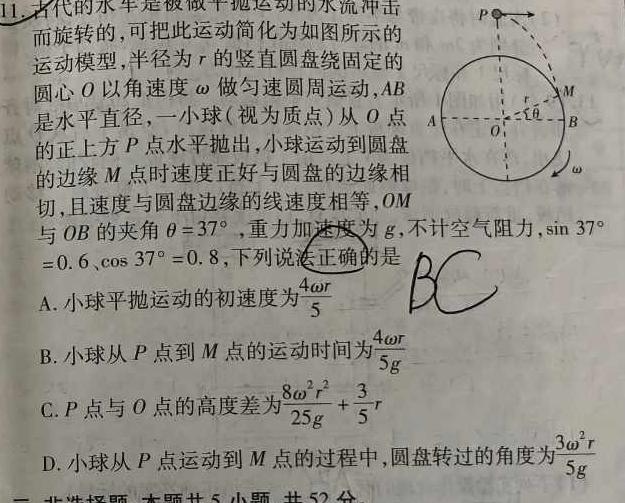 11. 古代的水车是被做平抛运动的水流冲击
而旋转的,可把此运动简化为如图所示的
运动模型,半径为 r 的竖直圆盘绕固定的
圆心 O 以角速度 ω 做匀速圆周运动,AB
是水平直径,一小球(视为质点)从 O 点
的正上方 P 点水平抛出,小球运动到圆盘
的边缘 M 点时速度正好与圆盘的边缘相
切,且速度与圆盘边缘的线速度相等,OM
与 OB 的夹角 θ=37°,重力加速度为 g,不计空气阻力,sin 37°
=0.6、cos 37°=0.8,下列说法正确的是
BC
A. 小球平抛运动的初速度为4ωr/5
B. 小球从 P 点到 M 点的运动时间为4ωr/5g
C. P 点与 O 点的高度差为8ω²r²/25g + 3/5 r
D. 小球从 P 点运动到 M 点的过程中,圆盘转过的角度为3ω²r/5g
二、非选择题:本题共 5 小题,共 52 分。
P
M
r
θ
A
O
B
ω